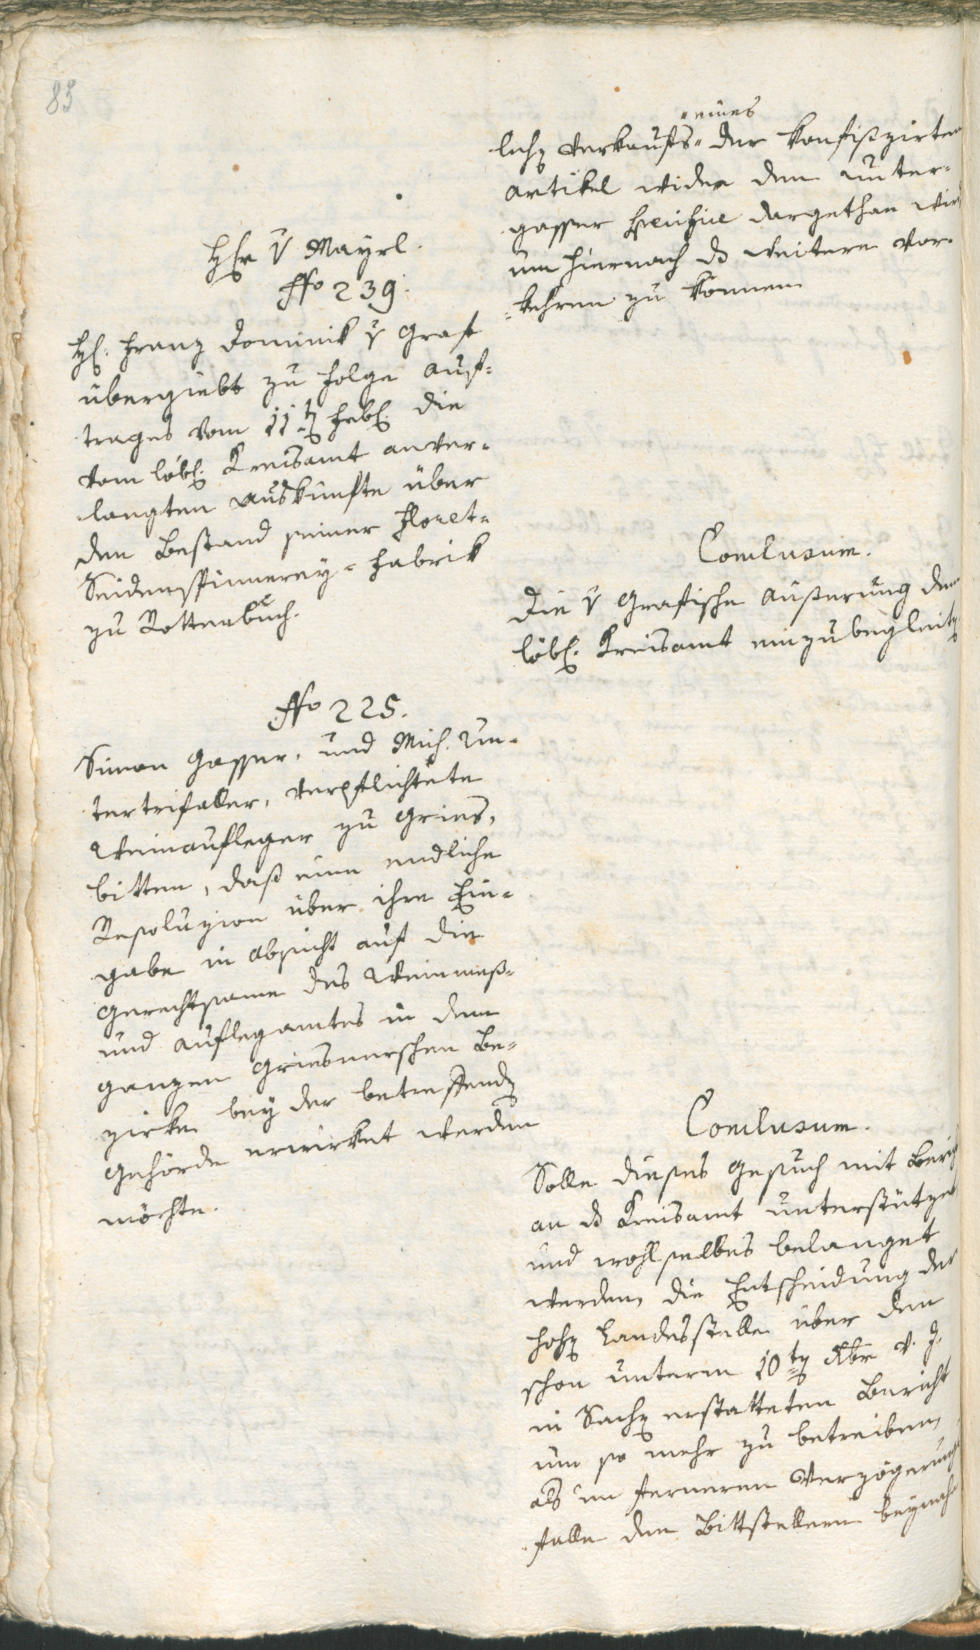 83
Hr v Mayrl.
No 239.
H. Franz Dominik v Graf
übergiebt zu Folge Auf-
trages vom 11ten Feb. die
vom löbl. Kreisamt anver-
langten Auskünfte über
den Bestand seiner Floret-
Seidenspinnerey-Fabrik
zu Rottenbuch.
No 225.
Simon Gasser, und Mich. Un-
tertrifaller, verpflichtete
Weinaufleger zu Gries,
bitten, daß eine endliche
Resoluzion über ihre Ein-
gabe in Absicht auf die
Gerechtsame des Weinmeß-
und Auflegamtes in dem
ganzen Griesnerschen Be-
zirke bey der betreffenden
Gehörde erwirket werden
möchte.
eines
Verkaufs der konfiszirten
Artikel wider den Unter-
gasser dargethan wird
um hiernach das weitere vor-
kehren zu können
Conclusum.
Die v Grafische Äußerung dem
löbl. Kreisamt einzubegleiten
Conclusum.
Solle dieses Gesuch mit Bericht
an das Kreisamt unterstützet
und wohlselbes belanget
werden, die Entscheidung der
hohen Landesstelle über den
schon unterm 10ten v. J.
in Sachen erstatteten Bericht
um so mehr zu betreiben,
als im ferneren Verzögerungs
falle den Bittstellern beynahe